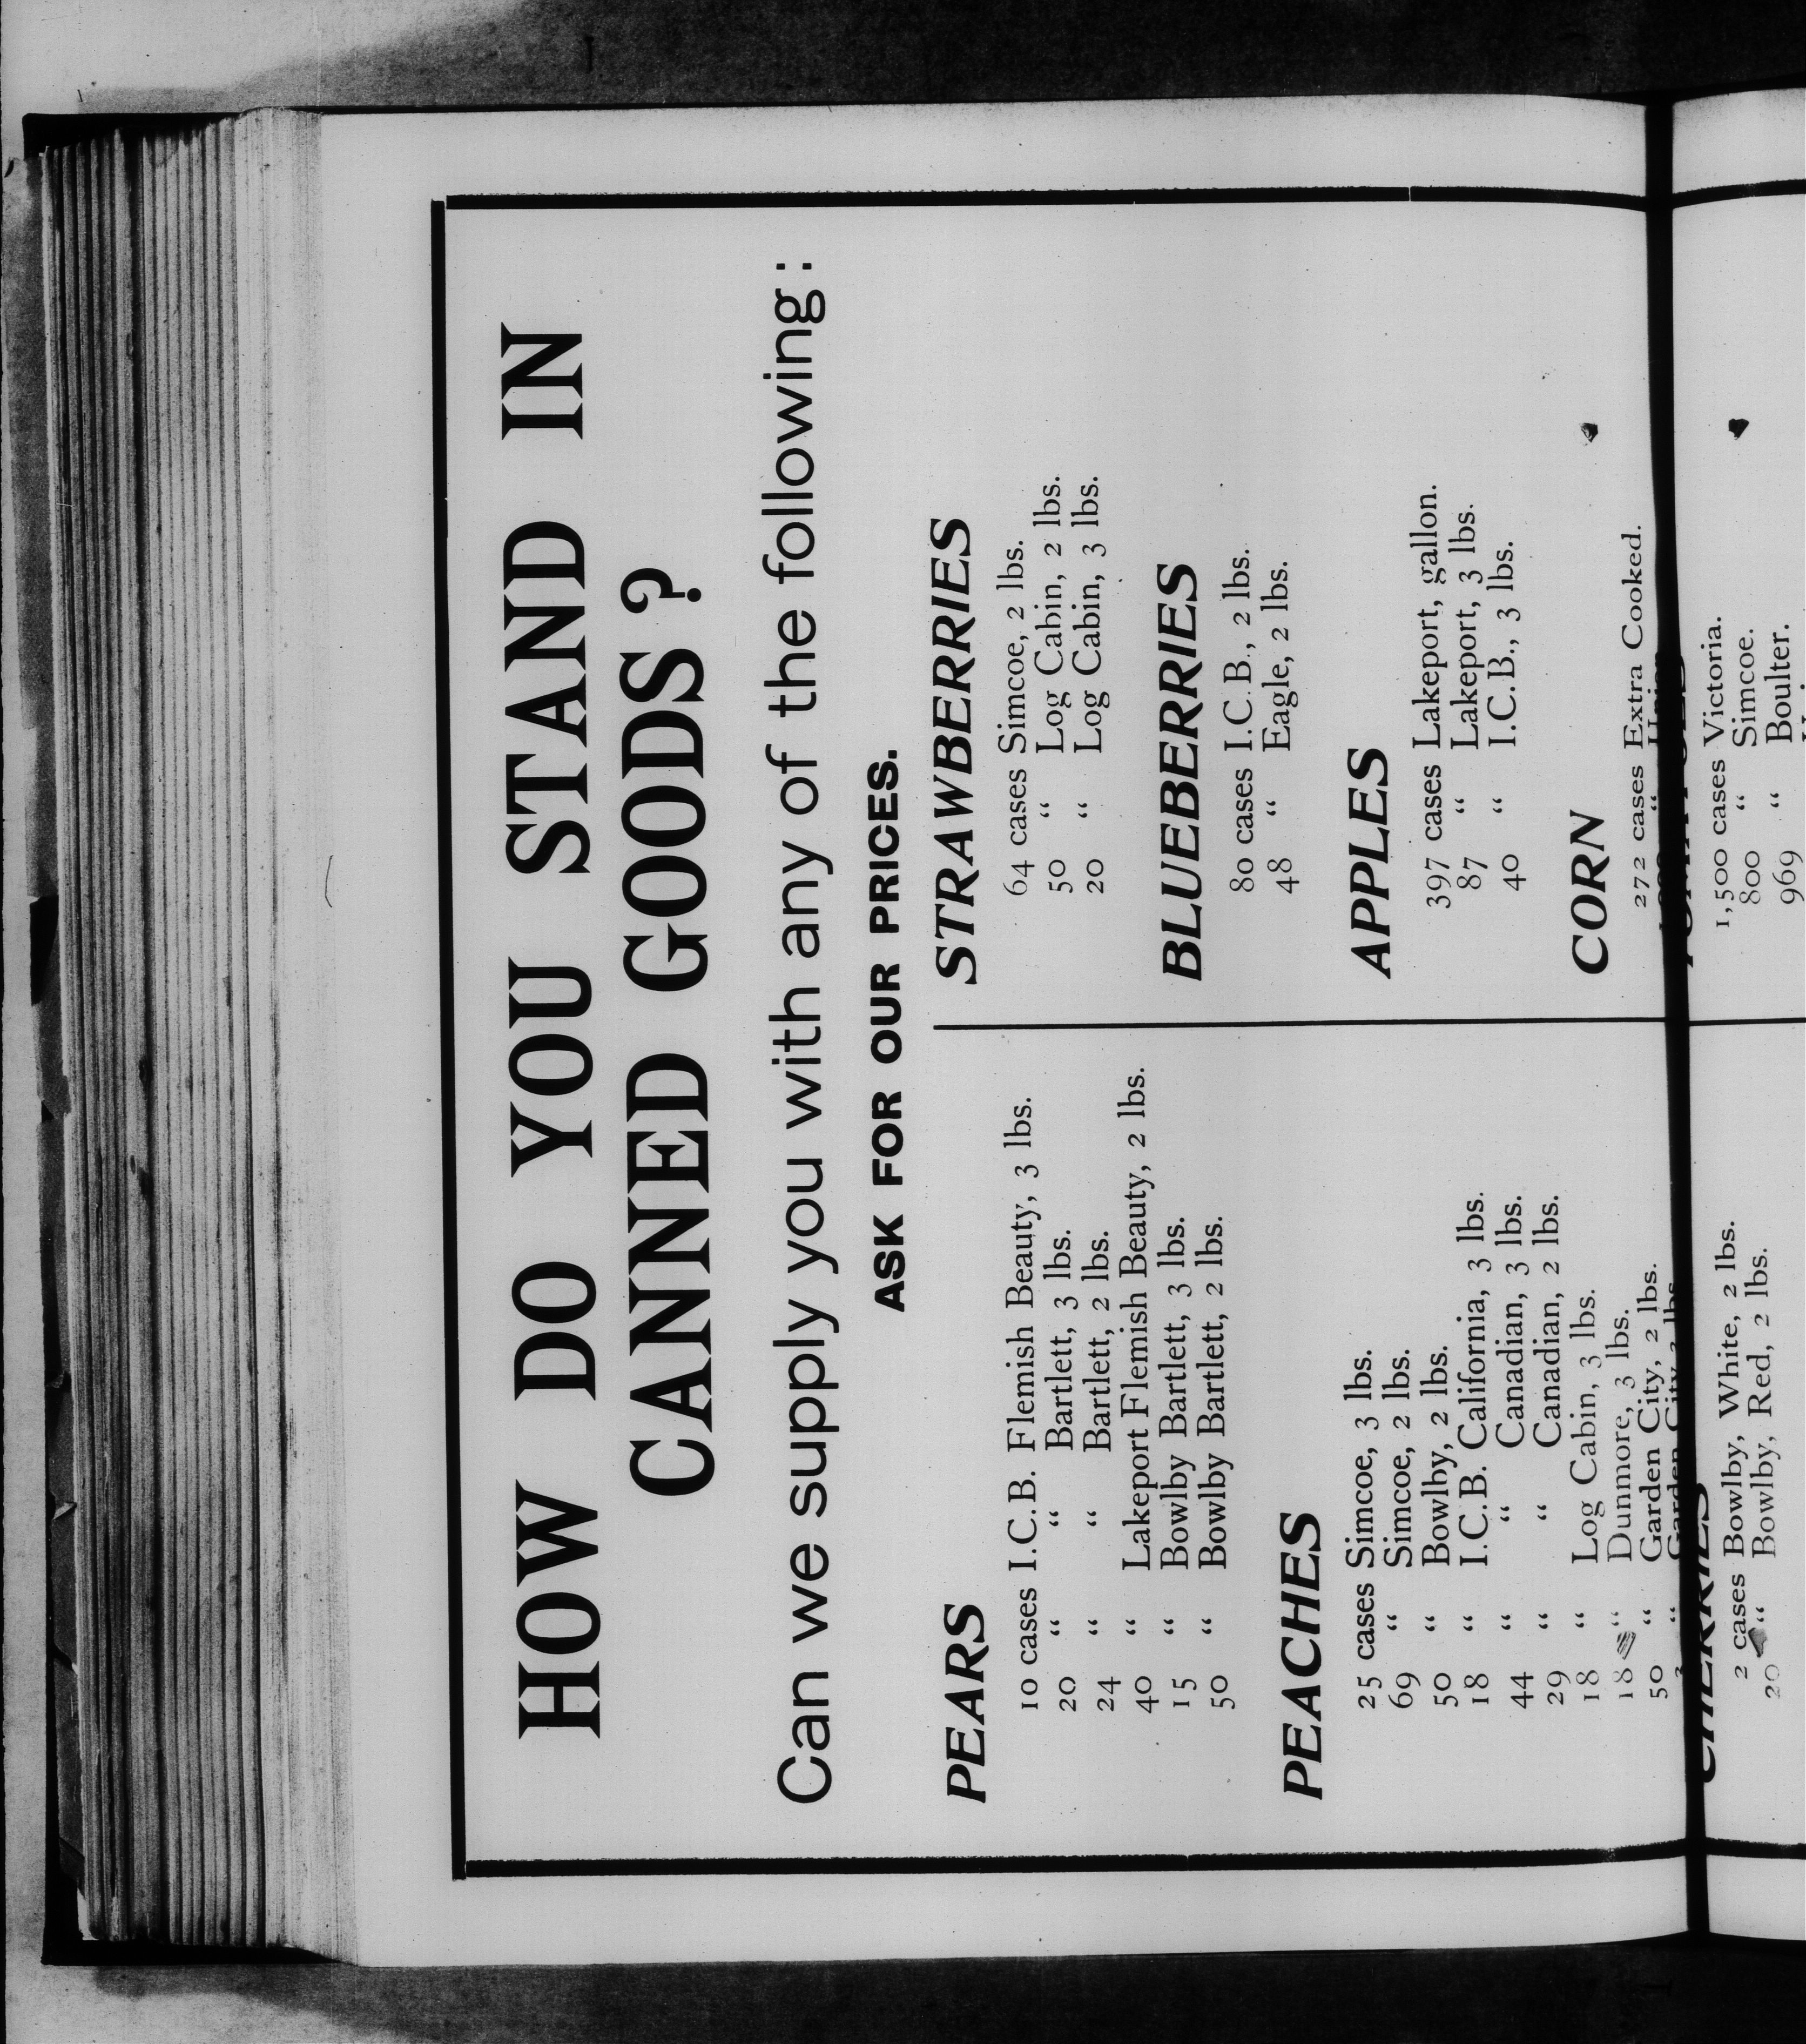 HOW DO YOU STAND IN
CANNED GOODS?
Can we supply you with any of the following:
ASK FOR OUR PRICES.
PEARS
10 cases I.C.B. Flemish Beauty, 3 lbs.
20 “ “ Bartlett, 3 lbs.
24 “ “ Bartlett, 2 lbs.
40 “ Lakeport Flemish Beauty, 2 lbs.
15 “ Bowlby Bartlett, 3 lbs.
50 “ Bowlby Bartlett, 2 lbs.
PEACHES
25 cases Simcoe, 3 lbs.
69 “ Simcoe, 2 lbs.
50 “ Bowlby, 2 lbs.
18 “ I.C.B. California, 3 lbs.
44 “ “ Canadian, 3 lbs.
29 “ “ Canadian, 2 lbs.
18 “ Log Cabin, 3 lbs.
18 “ Dunmore, 3 lbs.
50 “ Garden City, 2 lbs.
“ Garden City, 3 lbs.
CHERRIES
2 cases Bowlby, White, 2 lbs.
20 “ Bowlby, Red, 2 lbs.
STRAWBERRIES
64 cases Simcoe, 2 lbs.
50 “ Log Cabin, 2 lbs.
20 “ Log Cabin, 3 lbs.
BLUEBERRIES
80 cases I.C.B., 2 lbs.
48 “ Eagle, 2 lbs.
APPLES
397 cases Lakeport, gallon.
87 “ Lakeport, 3 lbs.
40 “ I.C.B., 3 lbs.
CORN
272 cases Extra Cooked.
1,500 cases Victoria.
800 “ Simcoe.
969 “ Boulter.